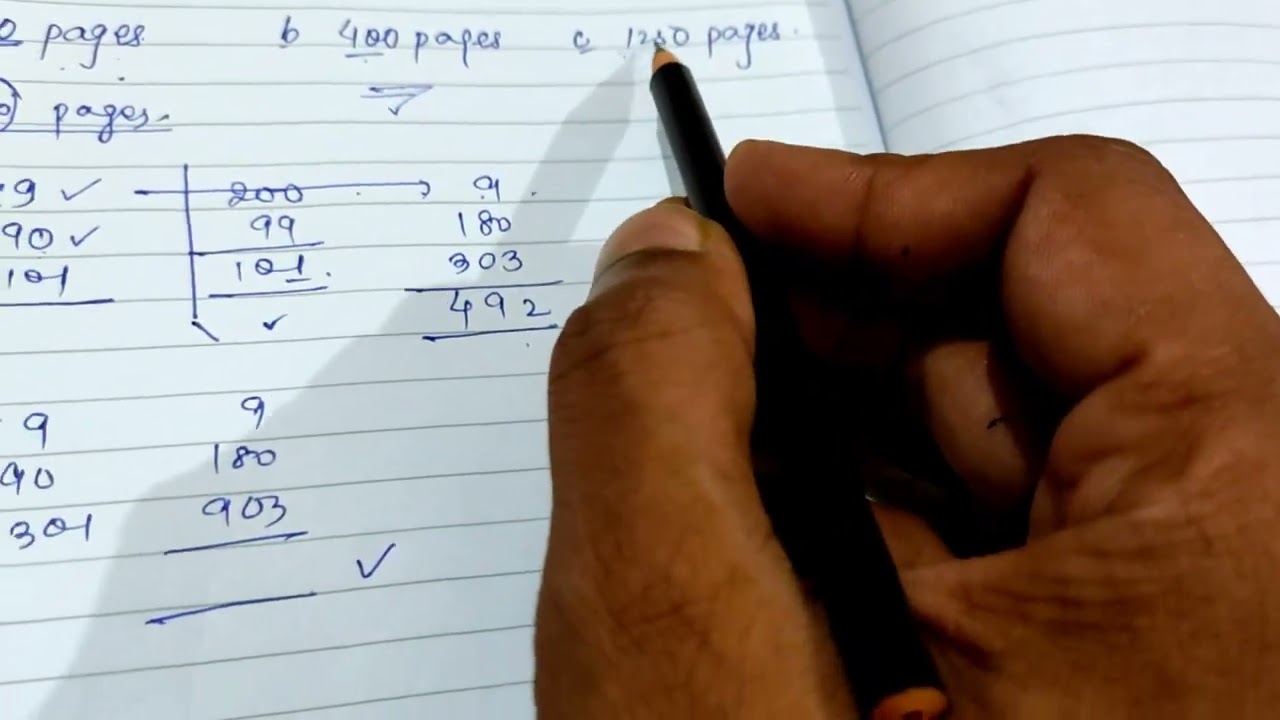 0 pages b 400 pages c 1250 pages.
pages.
9 200 9
90 99 180
101 101. 303
492
9 9
90 180
301 903